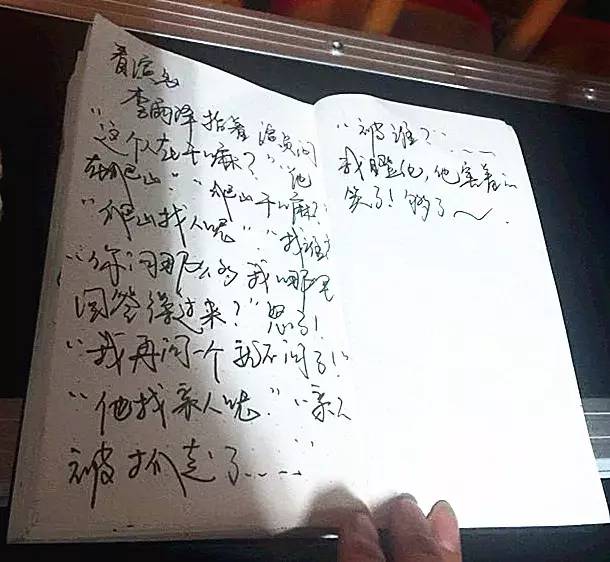 看演出
李雨泽指着演员问
"这个人在干嘛?""他
在爬山""爬山干嘛?"
"爬山找人呢""找谁?
"你问那么多我哪里
回答得过来?"怒了!
"我再问一个就不问了!"
"他找亲人呢.""亲人
被抓走了……"
"被谁?"……
我瞪他,他害羞的
笑了!够了~.